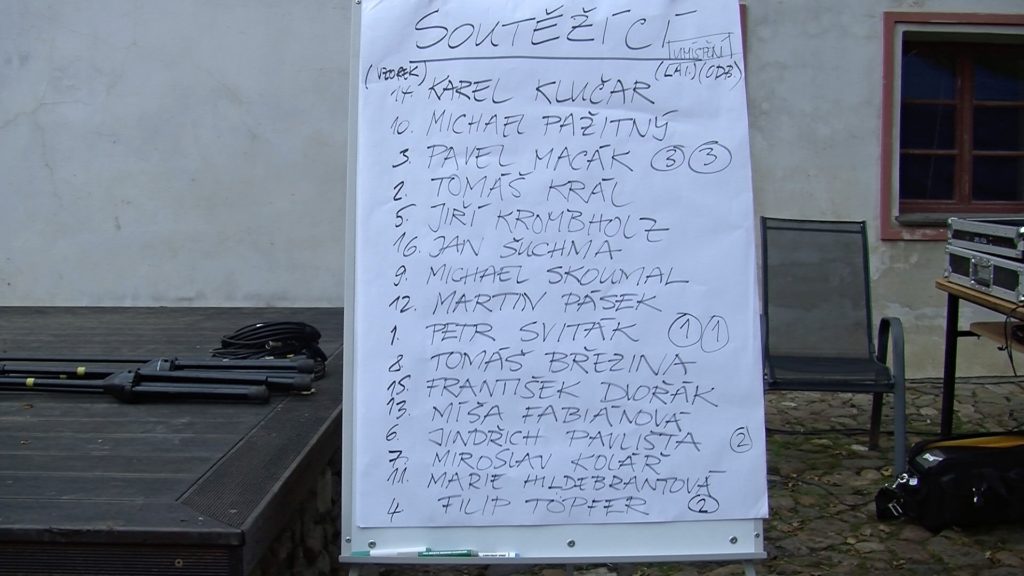 SOUTĚŽÍCÍ
UMÍSTĚNÍ
(VZOREK) (LAI) (ODB)
14 KAREL KLUČAR
10. MICHAEL PAŽITNÝ
3. PAVEL MACÁK 3 3
2. TOMÁŠ KRÁL
5. JIŘÍ KROMBHOLZ
16. JAN ŠUCHMA
9. MICHAEL SKOUMAL
12. MARTIN PÁSEK
1. PETR SVITÁK 1 1
8. TOMÁŠ BŘEZINA
15. FRANTIŠEK DVOŘÁK
13. MÍŠA FABIÁNOVÁ
6. JINDŘICH PAVLIŠTA 2
7. MIROSLAV KOLÁŘ
11. MARIE HILDEBRANTOVÁ
4 FILIP TÖPFER 2